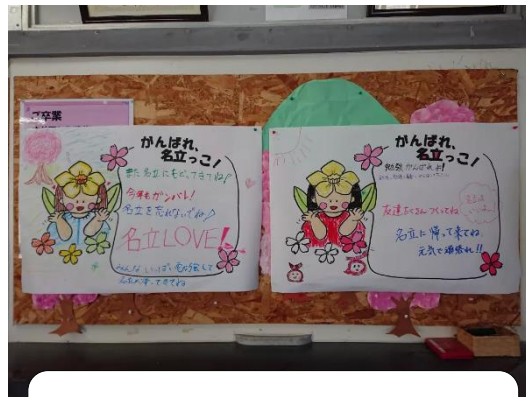 ご卒業
がんばれ、
名立っこ!
また名立にもどってきてね!
今年もガンバレ!
名立を忘れないでね!
名立LOVE!
みんないっぱい勉強して
がんばれ、
名立っこ!
勉強がんばれよ!
友達たくさんつくってね
名立に帰って来てね
元気で頑張れ!!